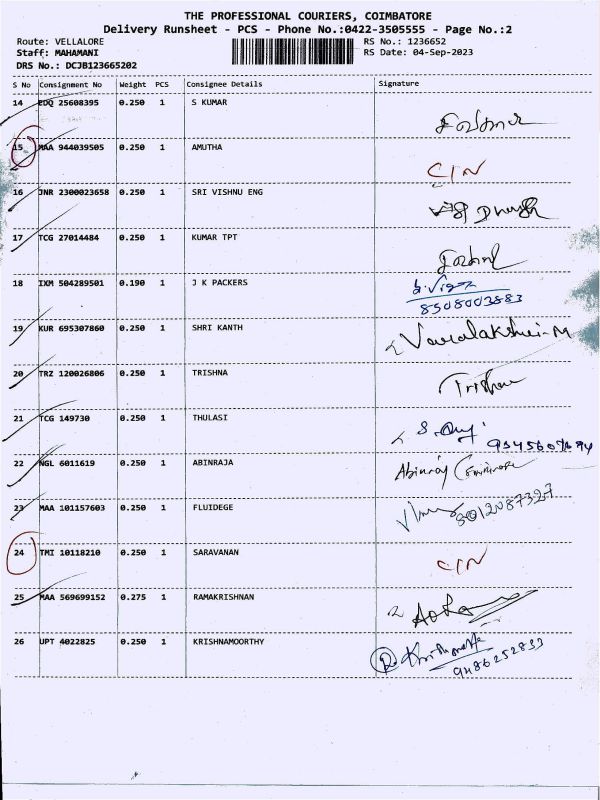 THE PROFESSIONAL COURIERS, COIMBATORE
Delivery Runsheet - PCS - Phone No.:0422-3505555 - Page No.:2
Route: VELLALORE RS No.: 1236652
Staff: MAHAMANI RS Date: 04-Sep-2023
DRS No.: DCJB123665202
S No Consignment No Weight PCS Consignee Details Signature
14 EDQ 25608395 0.250 1 S KUMAR
15 MAA 944039505 0.250 1 AMUTHA CIN
16 JNR 2300023658 0.250 1 SRI VISHNU ENG
17 TCG 27014484 0.250 1 KUMAR TPT
18 IXM 504289501 0.190 1 J K PACKERS
8508003883
19 KUR 695307860 0.250 1 SHRI KANTH Varalakshmi-M
20 TRZ 120026806 0.250 1 TRISHNA
21 TCG 149730 0.250 1 THULASI
22 NGL 6011619 0.250 1 ABINRAJA Abinraj
23 MAA 101157603 0.250 1 FLUIDEGE
24 TMI 10118210 0.250 1 SARAVANAN CIN
25 MAA 569699152 0.275 1 RAMAKRISHNAN
26 UPT 4022825 0.250 1 KRISHNAMOORTHY
9486252833